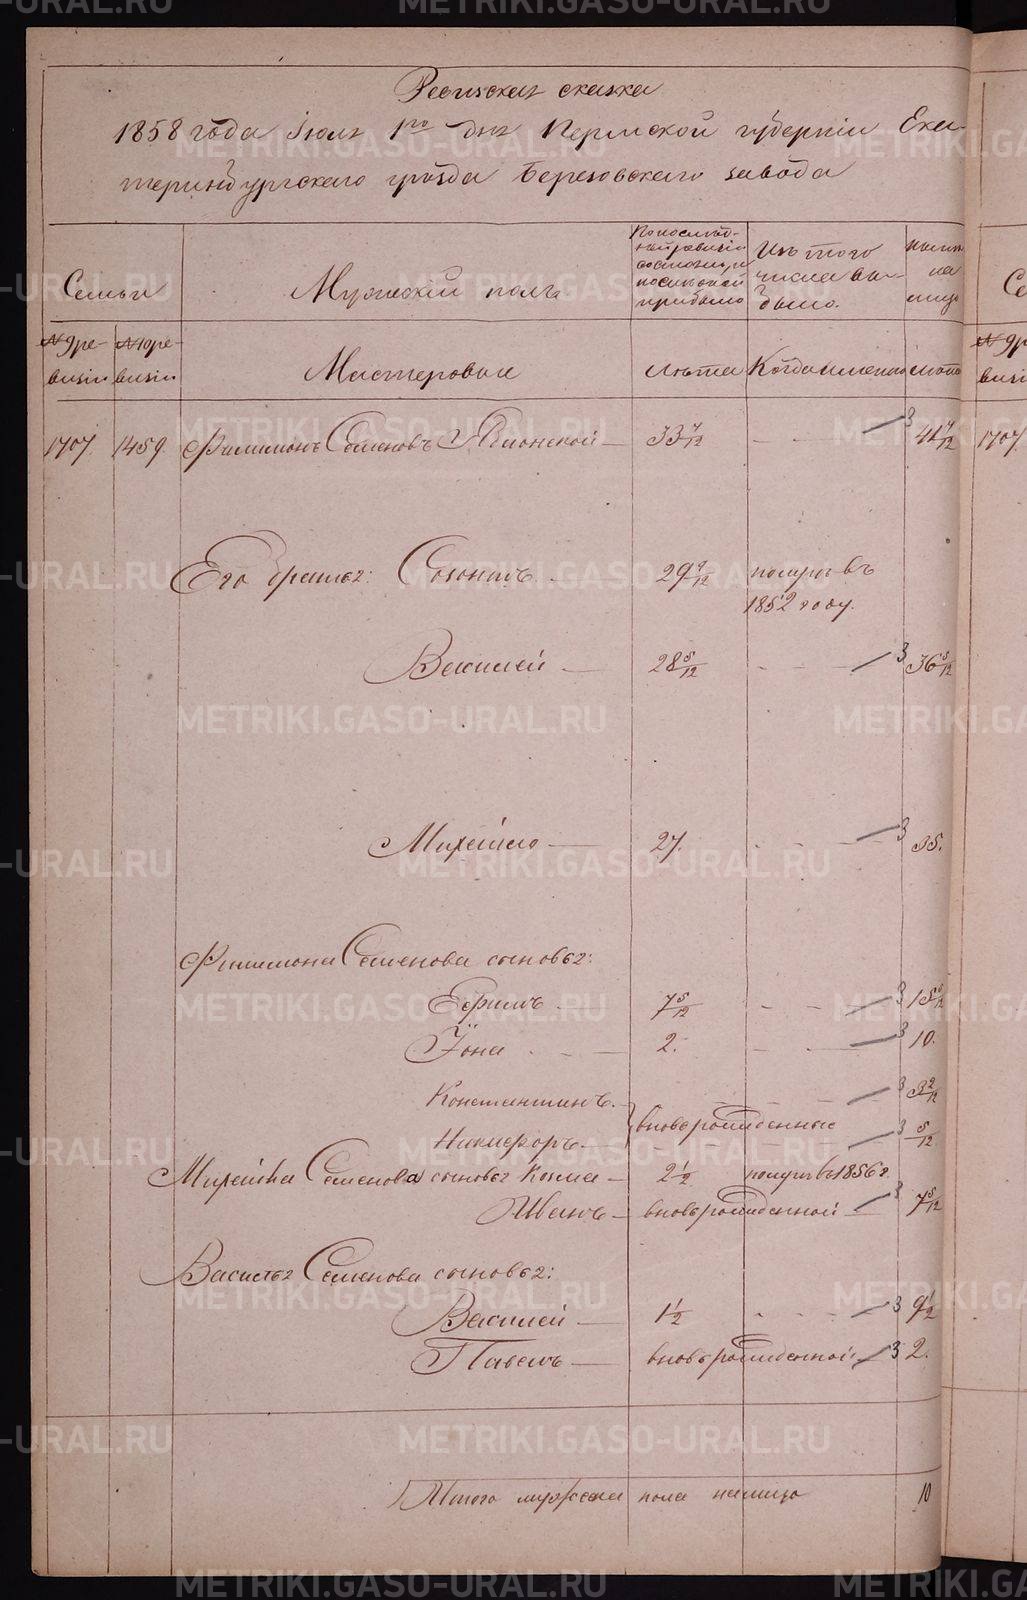 Ревизская сказка
1858 года Июля 1го дня Пермской губернiи Ека-
теринбургскаго уѣзда Березовскаго завода
Семьи
Мужескiй полъ
По послѣд-
ней ревизiи
состояло и
послѣ оной
прибыло
Изъ того
числа вы-
было.
Нынѣ
на
лицо
№ 9 ре-
визiи
№ 10 ре-
визiи
Мастеровые
Лѣта
Когда именно
лѣта
1707. 1459. Филимонъ Семеновъ 33 7/12 3 41 7/12
Его братья: Созонтъ 29 9/12 померъ въ
1852 году.
Василiй 28 5/12 3 36 5/12
Михайло 27. 3 35.
Филимона Семенова сыновья:
Ефимъ 7 5/12 3 15 5/12
Iона 2. 3 10.
Константинъ 3 3 2/12
вновьрожденные
Никифоръ 3 5/12
Михайла Семенова сыновья Козма 2 1/2 померъ въ 1856 г.
Иванъ вновьрожденной 3 7 5/12
Василья Семенова сыновья:
Василiй 1 1/2 3 9 1/2
Павелъ вновьрожденной 3 2.
Итого мужеска пола налицо 10
1707.
METRIKI.GASO-URAL.RU